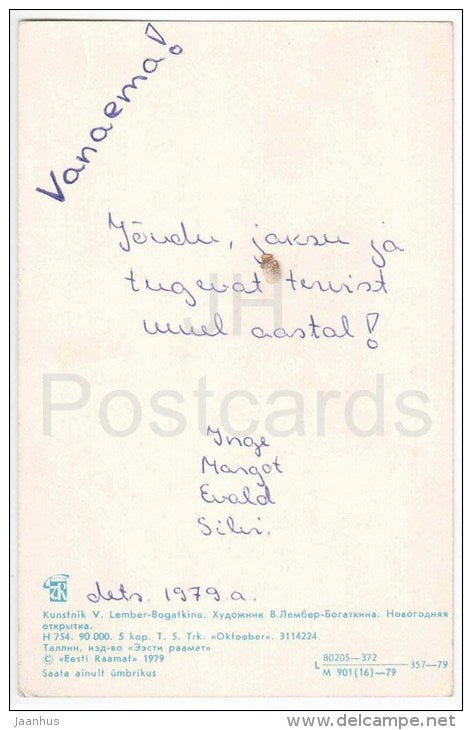 Vanaema!
Jõudu, jaksu ja
tugevat tervist
uuel aastal!
JH
Postcards
Inge
Margot
Evald
Silvi.
dets. 1979.a.
Kunstnik V. Lember-Bogatkina. Художник В.Лембер-Богаткина. Новогодняя
открытка.
H 754. 90 000. 5 kop. T. 5. Trk. «Oktoober». 3114224.
Таллин, изд-во «Ээсти раамат»
© «Eesti Raamat» 1979
Saata ainult ümbrikus
L 80205—372 357—79
M 901(16)—79
jaanhus
www.delcampe.net